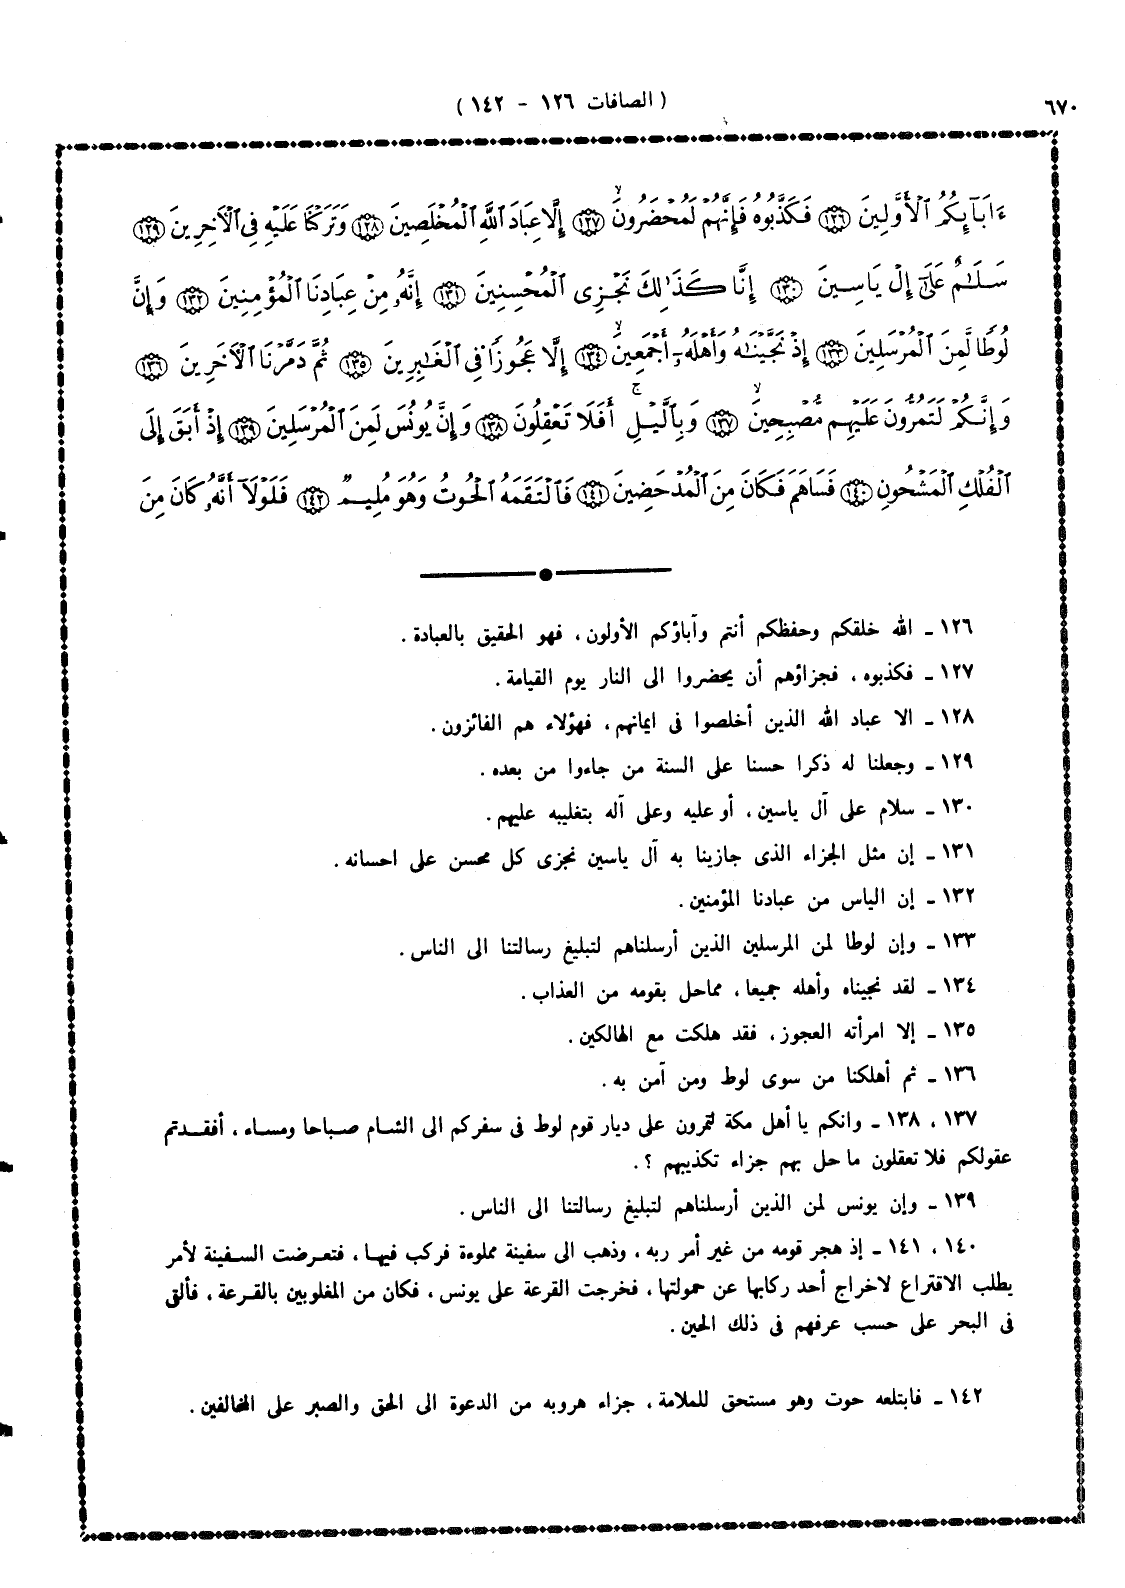 ٦٧٠
( الصافات ١٢٦ - ١٤٢ )
ءَابَآئِكُمُ ٱلْأَوَّلِينَ ١٢٦ فَكَذَّبُوهُ فَإِنَّهُمْ لَمُحْضَرُونَ ۙ ١٢٧ إِلَّا عِبَادَ ٱللَّهِ ٱلْمُخْلَصِينَ ١٢٨ وَتَرَكْنَا عَلَيْهِ فِى ٱلْأَخِرِينَ ١٢٩
سَلَـٰمٌ عَلَىٰٓ إِلْ يَاسِينَ ١٣٠ إِنَّا كَذَٰلِكَ نَجْزِى ٱلْمُحْسِنِينَ ١٣١ إِنَّهُۥ مِنْ عِبَادِنَا ٱلْمُؤْمِنِينَ ١٣٢ وَإِنَّ
لُوطًا لَّمِنَ ٱلْمُرْسَلِينَ ١٣٣ إِذْ نَجَّيْنَـٰهُ وَأَهْلَهُۥٓ أَجْمَعِينَ ۙ ١٣٤ إِلَّا عَجُوزًا فِى ٱلْغَـٰبِرِينَ ١٣٥ ثُمَّ دَمَّرْنَا ٱلْأَخَرِينَ ١٣٦
وَإِنَّكُمْ لَتَمُرُّونَ عَلَيْهِم مُّصْبِحِينَ ۙ ١٣٧ وَبِٱلَّيْلِ ۚ أَفَلَا تَعْقِلُونَ ١٣٨ وَإِنَّ يُونُسَ لَمِنَ ٱلْمُرْسَلِينَ ١٣٩ إِذْ أَبَقَ إِلَى
ٱلْفُلْكِ ٱلْمَشْحُونِ ١٤٠ فَسَاهَمَ فَكَانَ مِنَ ٱلْمُدْحَضِينَ ١٤١ فَٱلْتَقَمَهُ ٱلْحُوتُ وَهُوَ مُلِيمٌ ١٤٢ فَلَوْلَآ أَنَّهُۥ كَانَ مِنَ
١٢٦ ـ الله خلقكم وحفظكم أنتم وآباؤكم الأولون ، فهو الحقيق بالعبادة .
١٢٧ ـ فكذبوه ، فجزاؤهم أن يحضروا الى النار يوم القيامة .
١٢٨ ـ الا عباد الله الذين أخلصوا فى ايمانهم ، فهؤلاء هم الفائزون .
١٢٩ ـ وجعلنا له ذكرا حسنا على السنة من جاءوا من بعده .
١٣٠ ـ سلام على آل ياسين ، أو عليه وعلى آله بتغليبه عليهم .
١٣١ ـ إن مثل الجزاء الذى جازينا به آل ياسين نجزى كل محسن على احسانه .
١٣٢ ـ إن الياس من عبادنا المؤمنين .
١٣٣ ـ وإن لوطا لمن المرسلين الذين أرسلناهم لتبليغ رسالتنا الى الناس .
١٣٤ ـ لقد نجيناه وأهله جميعا ، مماحل بقومه من العذاب .
١٣٥ ـ إلا امرأته العجوز ، فقد هلكت مع الهالكين .
١٣٦ ـ ثم أهلكنا من سوى لوط ومن آمن به .
١٣٧ ، ١٣٨ ـ وانكم يا أهل مكة لتمرون على ديار قوم لوط فى سفركم الى الشام صباحا ومساء ، أفقدتم
عقولكم فلا تعقلون ما حل بهم جزاء تكذيبهم ؟ .
١٣٩ ـ وإن يونس لمن الذين أرسلناهم لتبليغ رسالتنا الى الناس .
١٤٠ ، ١٤١ ـ إذ هجر قومه من غير أمر ربه ، وذهب الى سفينة مملوءة فركب فيها ، فتعرضت السفينة لأمر
يطلب الاقتراع لاخراج أحد ركابها عن حمولتها ، فخرجت القرعة على يونس ، فكان من المغلوبين بالقرعة ، فألقى
فى البحر على حسب عرفهم فى ذلك الحين .
١٤٢ ـ فابتلعه حوت وهو مستحق للملامة ، جزاء هروبه من الدعوة الى الحق والصبر على المخالفين .